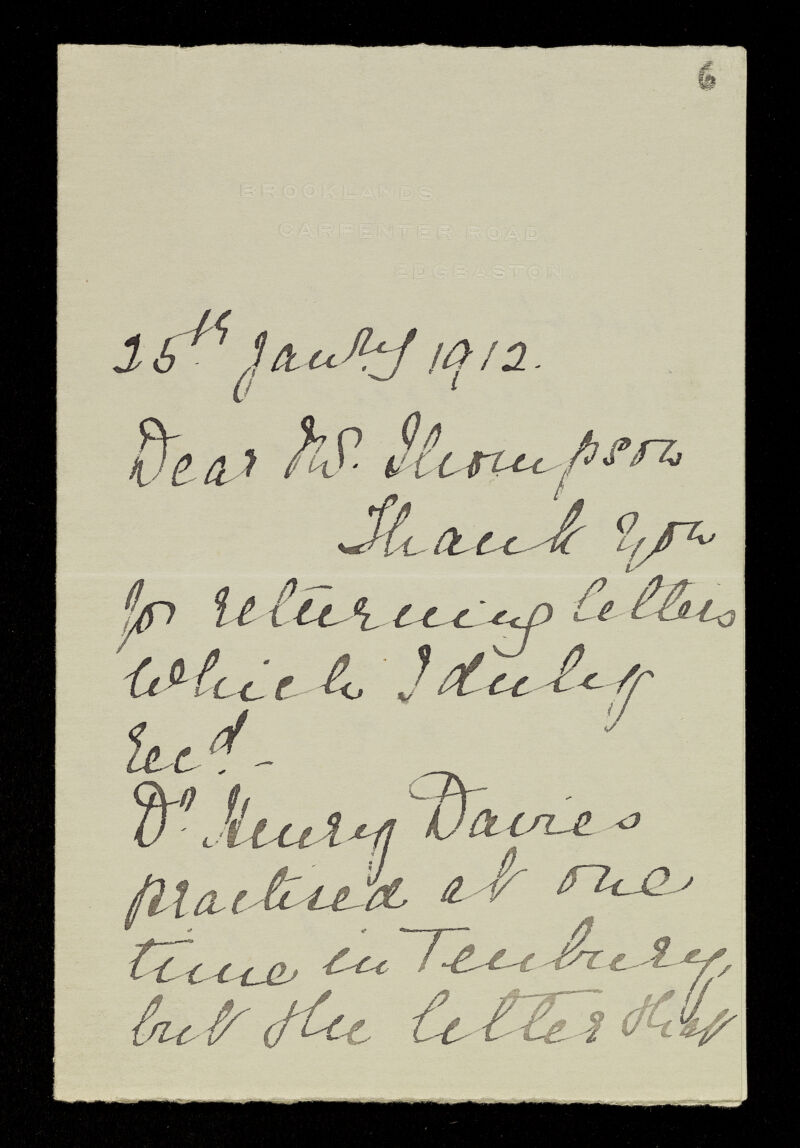 6
BROOKLANDS
CARPENTER ROAD
EDGBASTON.
25th Janry 1912.
Dear Mr. Thompson
Thank you
for returning letters
which I duly
recd. -
Dr Henry Davies
practised at one
time in Tenbury,
but the letter that